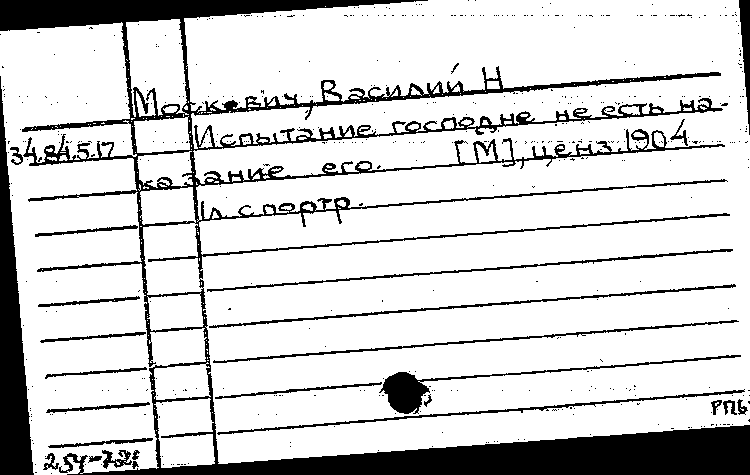 Москевич, Василий Н
34.84.5.17
Испытание господне не есть на-
казание его. [М], ценз. 1904.
1л с портр.
РПБ